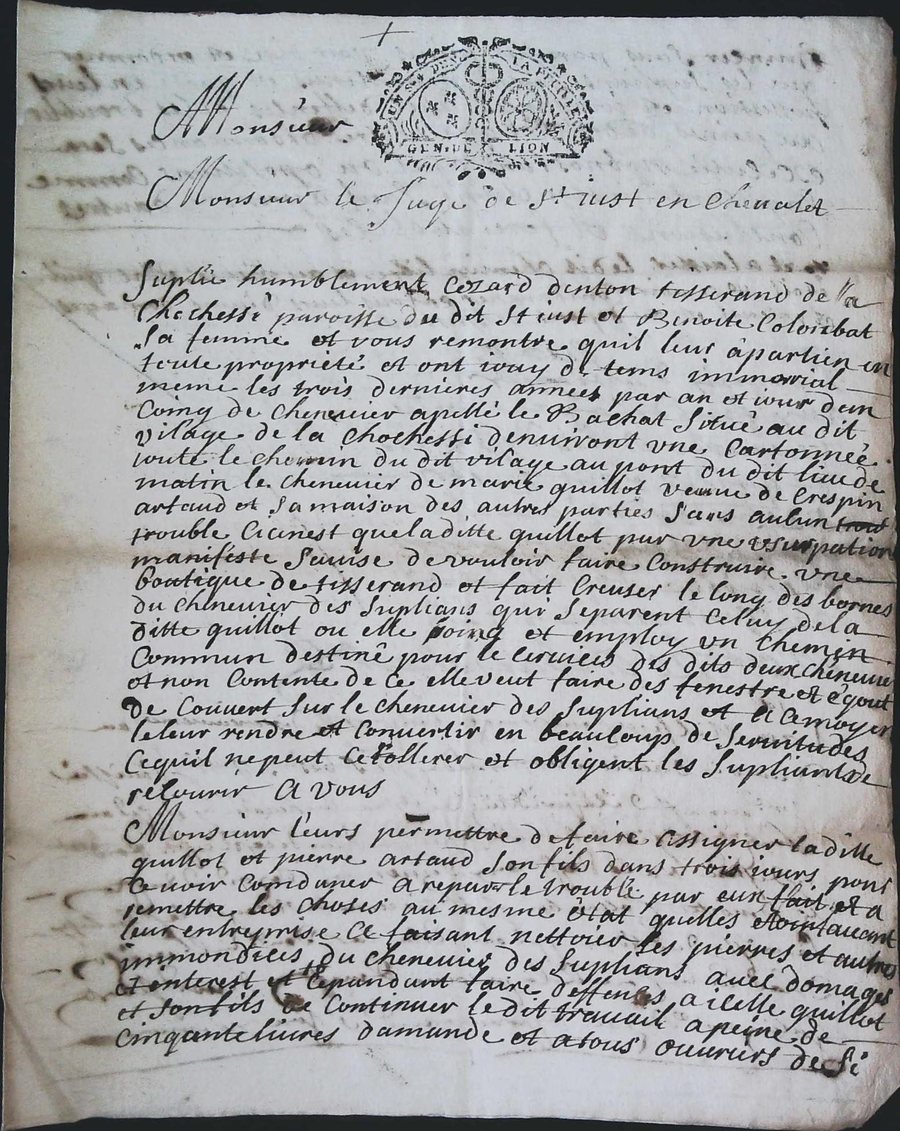 GEN. DE LION
Monsieur
Monsieur le Juge de St iust en Chevalet
Suplie humblement Cezard denton tisserand de la
Chochessi paroisse du dit St iust et Benoite Colombat
Sa femme et vous remontre quil leur apartien en
toute propriété et ont iouy de tems immorial
meme les trois dernières années par an et iour dun
Coing de chenevier apellé le Bachat Situé au dit
vilage de la Chochessi denuiront vne Cartonnée
ioute le chemin du dit vilage au pont du dit lieu de
matin le chenevier de marie quillot veuve de Crespin
artaud et Sa maison des autres parties Sans aulun
trouble Cianest que laditte quillot par vne vsurpation
manifeste Sauise de vouloir faire Construire vne
boutique de tisserand et fait Creuser le long des bornes
du chenevier des Suplians qui Separent Celuy de la
ditte quillot ou elle joing et employ vn Chemen
Commun destiné pour le Cervices des dits deux chenevie
et non Contente de ce elle veut faire des fenestre et égout
de Couvert Sur le chenevier des Suplians et a Ce moyen
le leur rendre et Convertir en beaucoups de Servitudes
Ce quil ne peut tollerer et obligent les Supliants de
recourir a vous
Monsieur leurs permettre de faire assigner la ditte
quillot et pierre artaud Son fils dans trois iours pour
Ce voir Comdaner a reparer le trouble par eux fait et a
remettre les choses au mesme état quelles etoint auant
leur entreprise Ce faisant nettoier les pierres et autres
immondices du chenevier des Suplians avec domages
et interest et Cependant faire deffences a icelle quillot
et Son fils de Continuer le dit travail a peine de
Cinquante livres damande et a tous ouvriers de Si